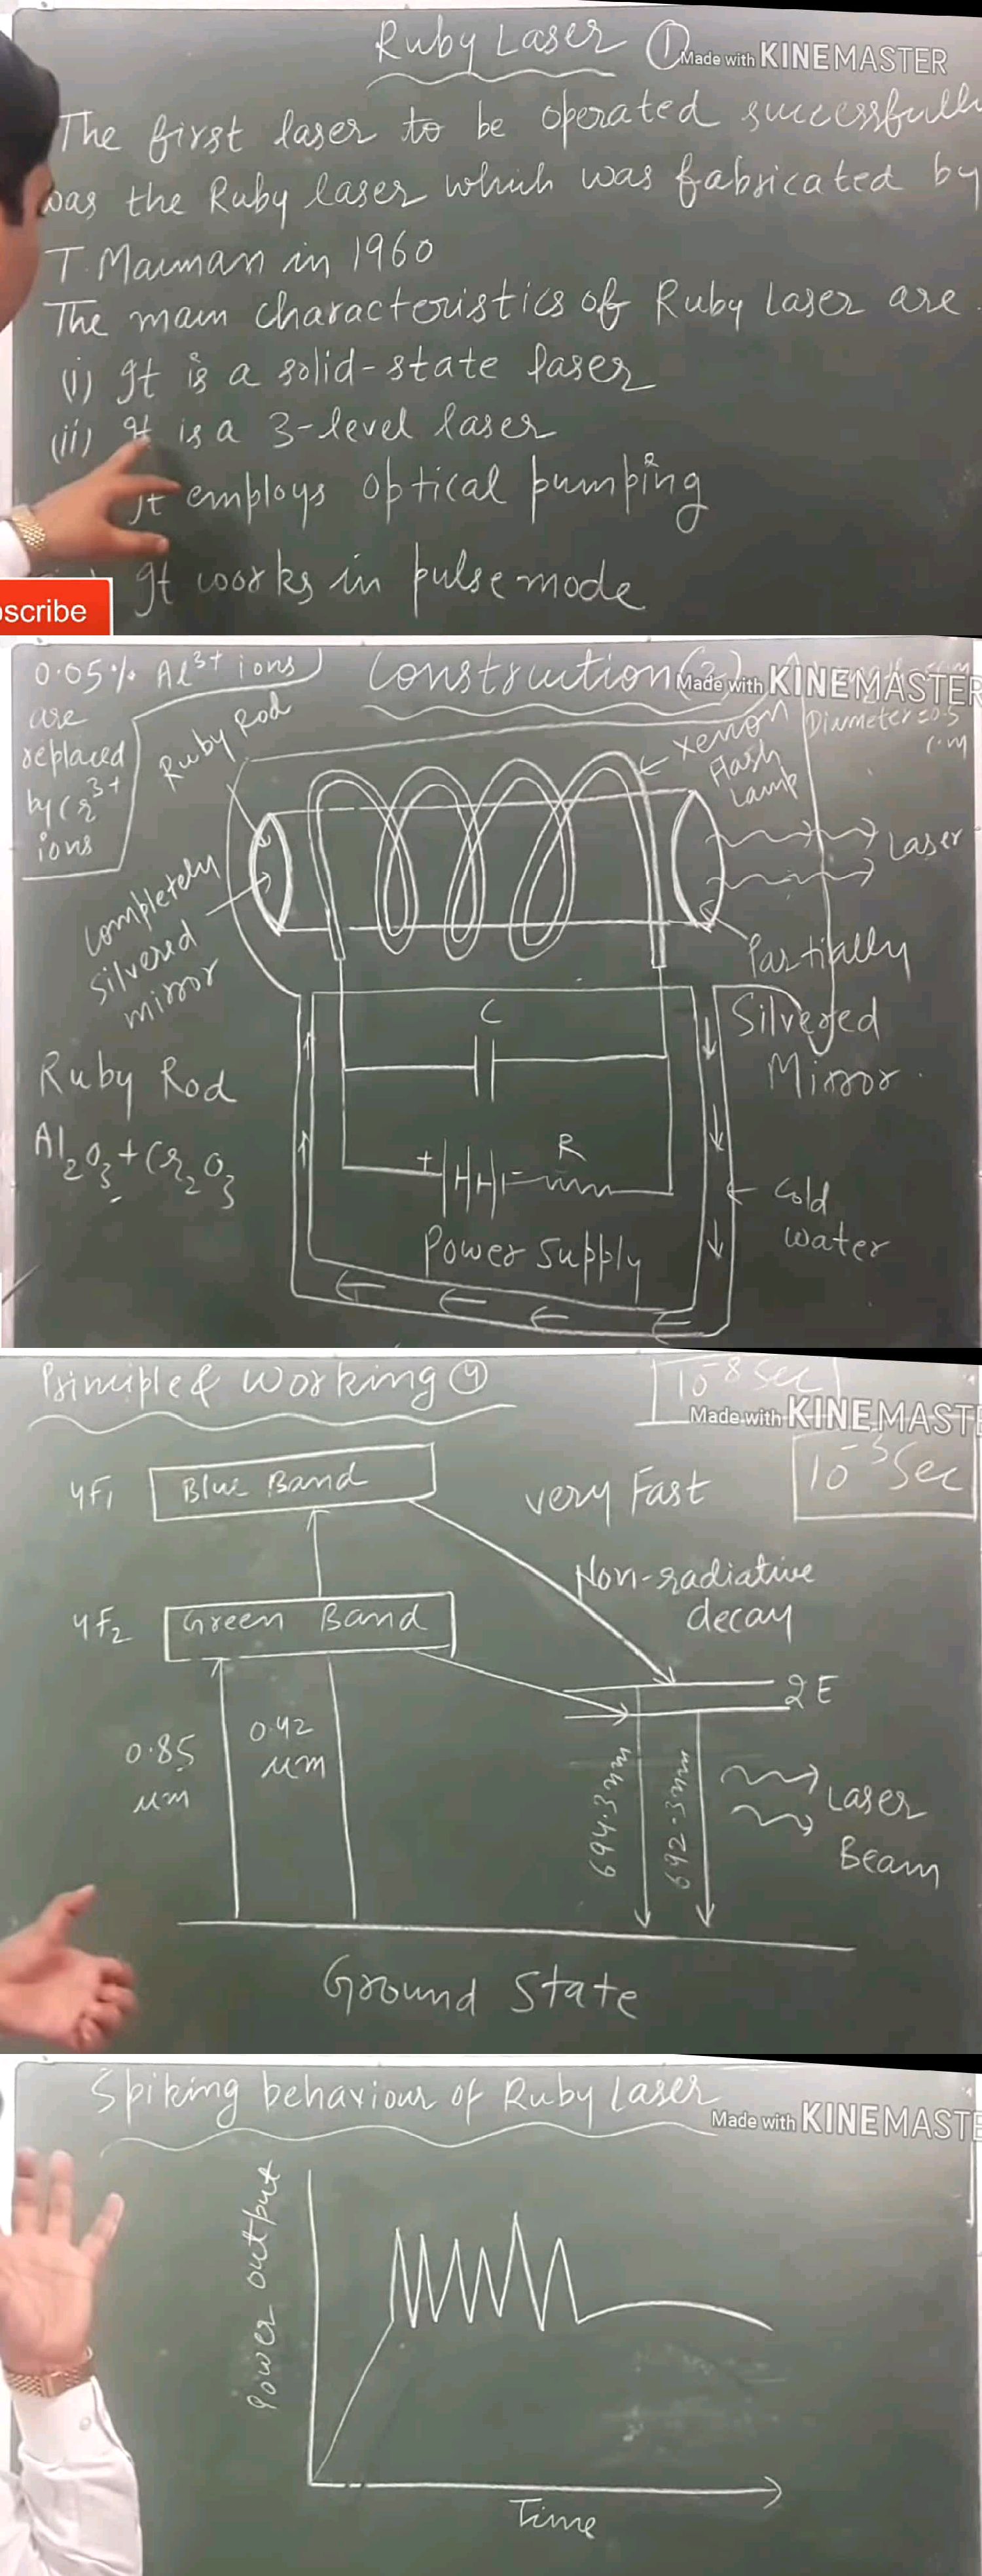 Ruby Laser ①
Made with KINEMASTER
The first laser to be operated successfull
was the Ruby laser which was fabricated by
T. Maiman in 1960
The main characteristics of Ruby Laser are
(i) It is a solid-state laser
(ii) It is a 3-level laser
It employs optical pumping
It works in pulse mode
scribe
0.05% Al³⁺ ions
are
replaced
by Cr³⁺
ions
Construction (2)
Made with KINEMASTER
Diameter = 0.5
cm
Ruby Rod
Xenon
Flash
Lamp
Laser
completely
silvered
mirror
Partially
Silvered
Mirror
C
Ruby Rod
Al₂O₃ + Cr₂O₃
+
-
R
Power supply
Cold
water
Principle & Working ④
10⁻⁸ Sec
Made with KINEMAST
10⁻³ Sec
4F₁
Blue Band
very Fast
Non-radiative
decay
4F₂
Green Band
2E
0.85
μm
0.42
μm
694.3nm
692.3nm
Laser
Beam
Ground State
Spiking behaviour of Ruby Laser
Made with KINEMAST
Power output
Time